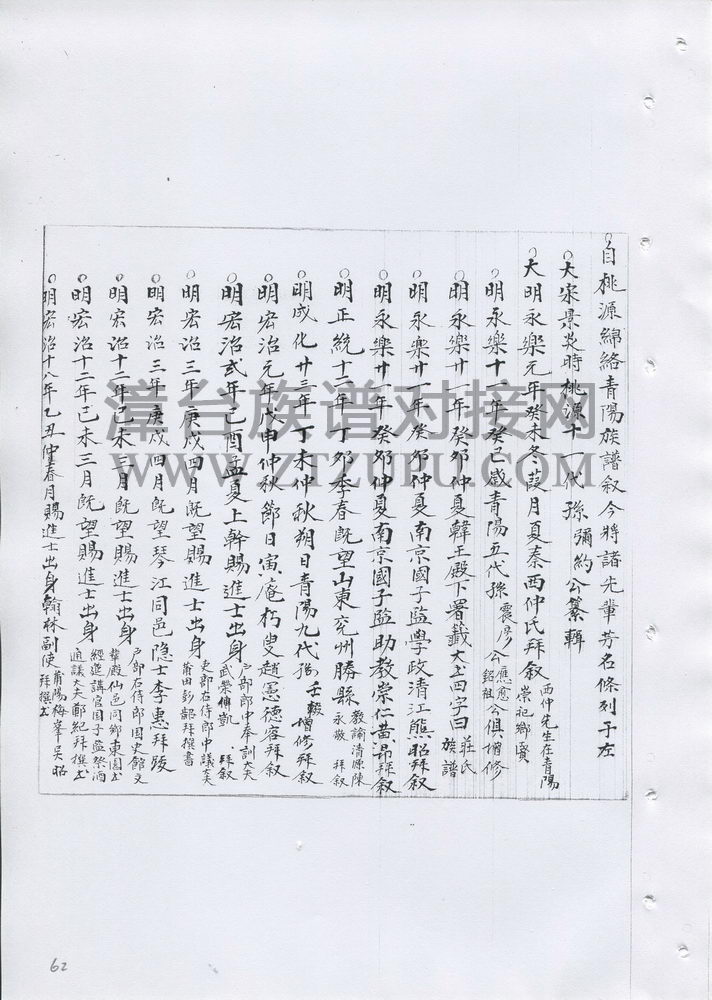 自桃源綿絡青陽族譜叙今將諸先輩芳名條列于左
大宋景炎時桃源十一代孫彌約公纂輯
大明永樂元年癸未冬葭月夏秦西仲氏拜叙 西仲先生在青陽崇祀鄉賢
明永樂十一年癸巳歲青陽五代孫震彦公應愈公俱增修
明永樂廿一年癸夘仲夏韓王殿下署籤大書四字曰莊氏族譜
明永樂廿一年癸夘仲夏南京國子監學政清江熊昭拜叙
明永樂廿一年癸夘仲夏南京國子監助教崇仁黄昂拜叙
明正統十二年丁夘季春既望山東兖州勝縣教諭清源陳永敬拜叙
明成化廿三年丁未仲秋朔日青陽九代孫壬毅增修拜叙
明宏治元年戊申仲秋節日寅庵朽叟趙憲德容拜叙
明宏治弍年己酉孟夏上幹賜進士出身户部郎中奉訓大夫武榮傅凱拜叙
明宏治三年庚戍四月既望賜進士出身吏部右侍郎中議大夫莆田彭韶拜撰書
明宏治三年庚戍四月既望琴江同邑隐士李惠拜跋
明宏治十二年己未三月既望賜進士出身户部右侍郎国史館文華殿仙邑同鄉東園書
明宏治十二年己未三月既望賜進士出身經筵講官国子監祭酒通議大夫鄭紀拜撰書
明宏治十八年乙丑仲春月賜進士出身翰林副使莆陽梅峯吴昭拜撰書
漳台族谱对接网
WWW.ZTZUPU.COM
62